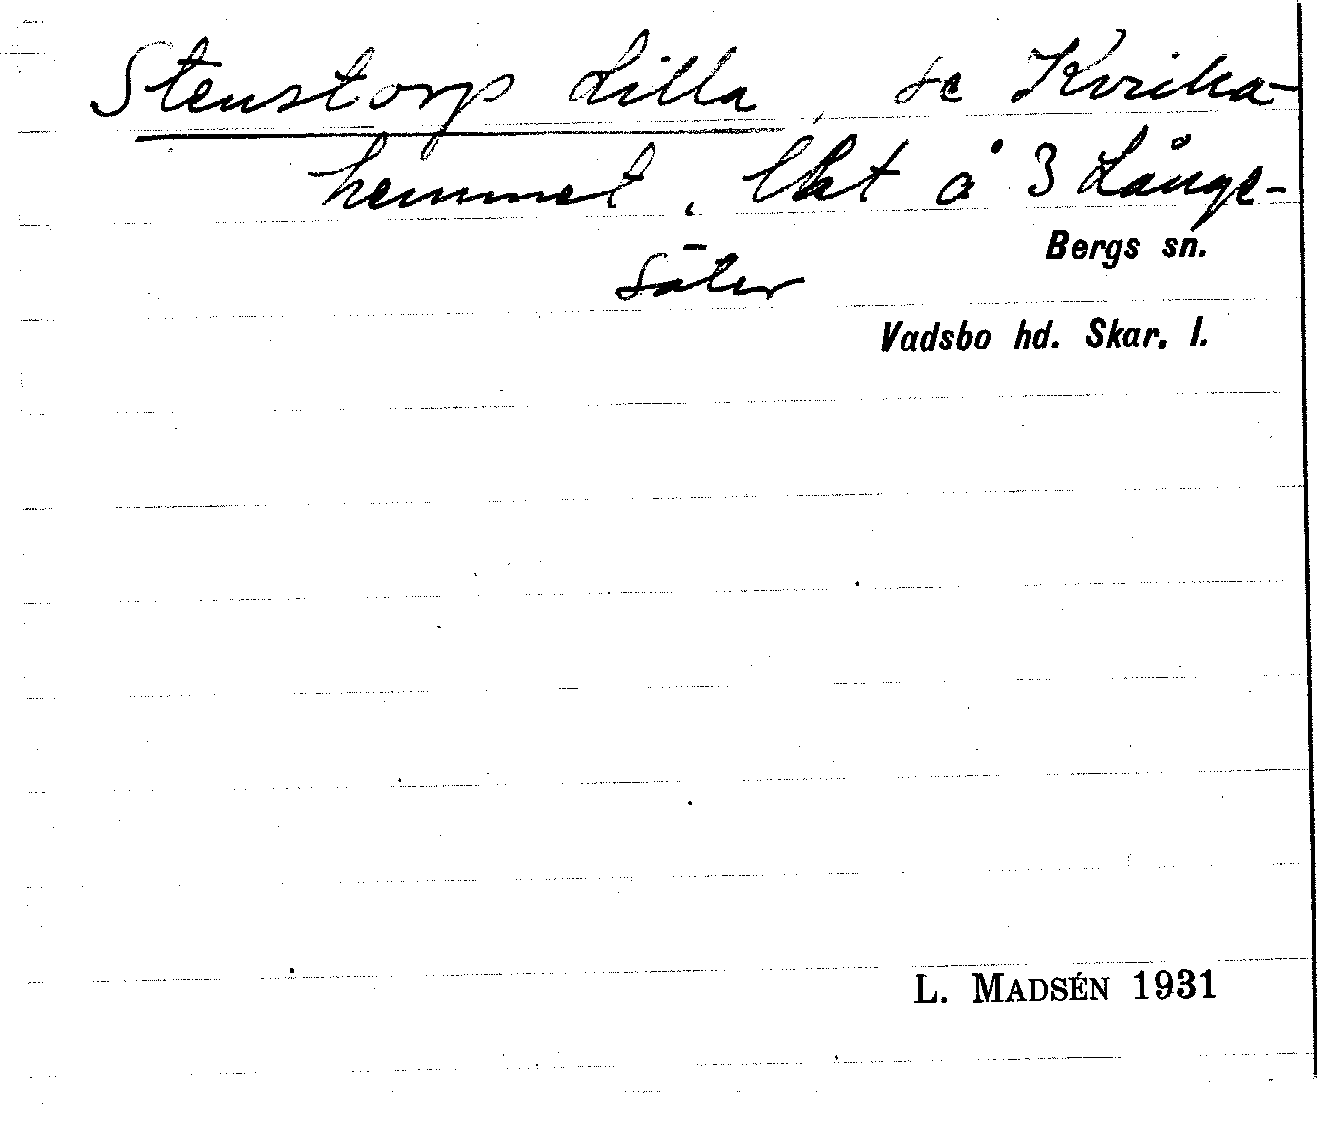 Stenstorp Lilla, se Kvika-
hemmet, lht å 3 Långe-
säter
Bergs sn.
Vadsbo hd. Skar. l.
L. MADSÉN 1931